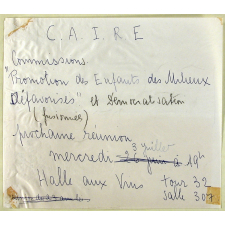 C.A.I.R.E
Commissions.
"Promotion des Enfants des Milieux
Défavorisés" et Démocratisation
(fusionnées)
prochaine réunion
3 Juillet
mercredi 26 juin à 19h
Halle aux Vins tour 32
salle 307